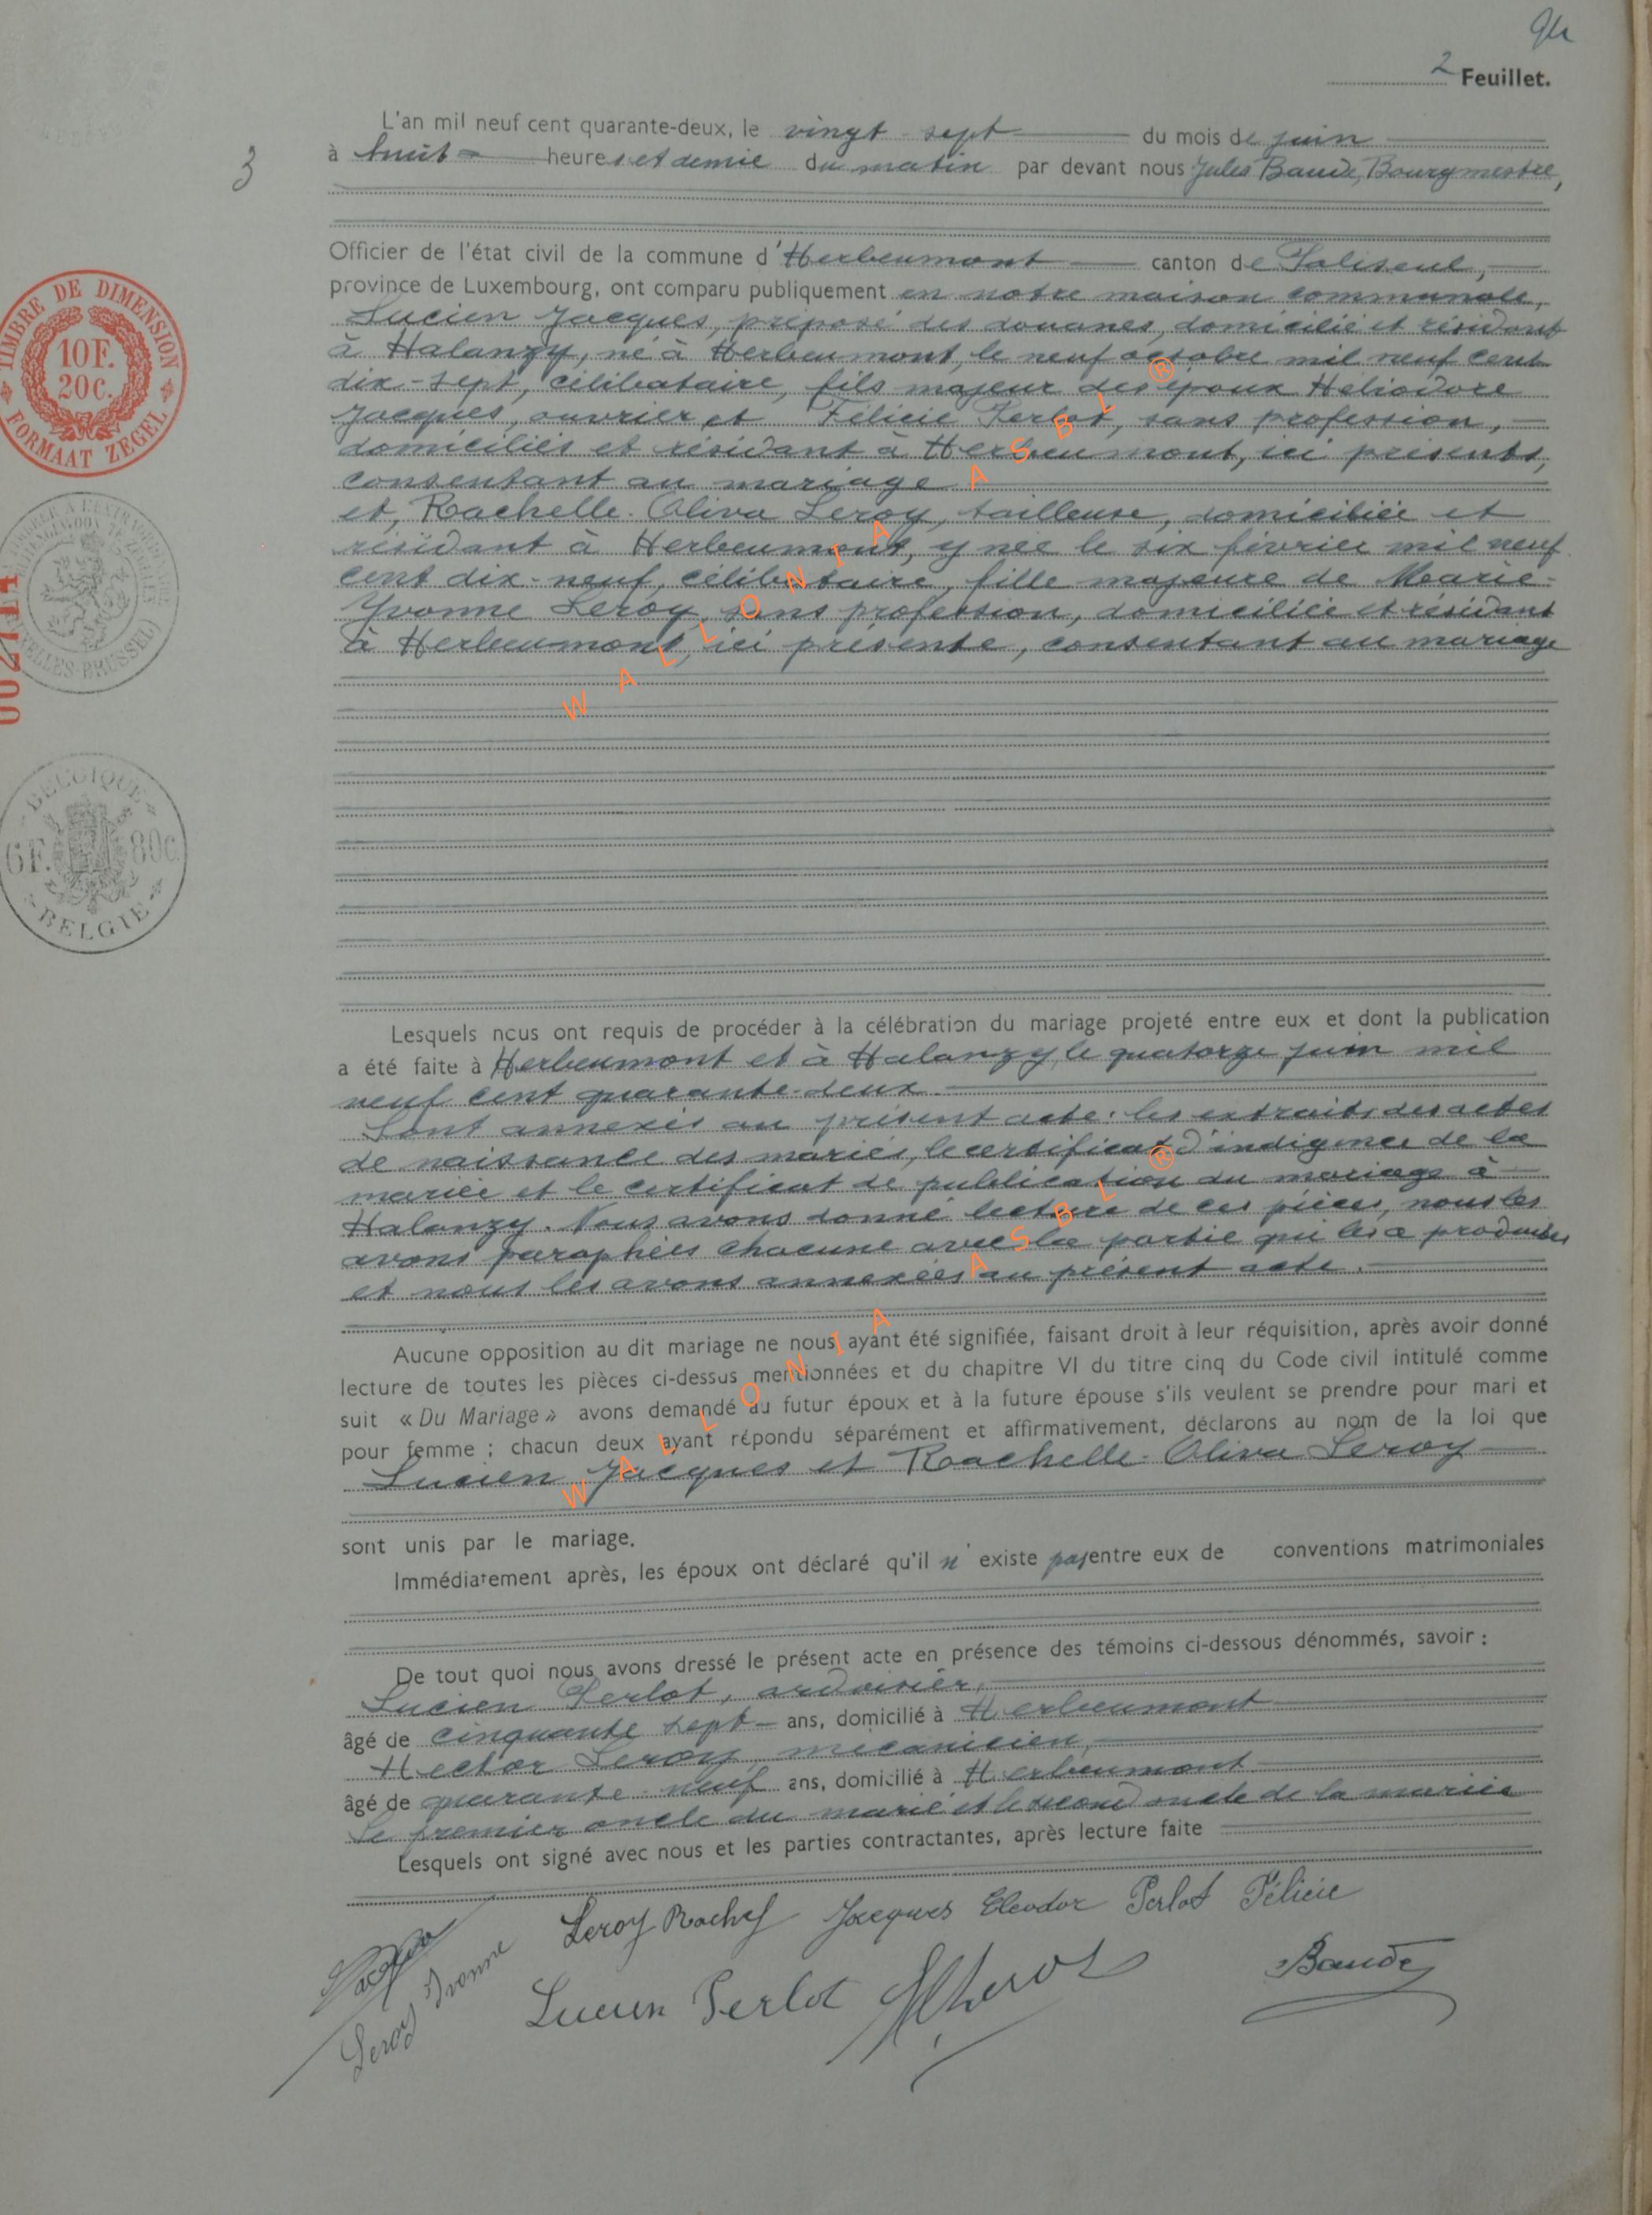 2 Feuillet.
3
L'an mil neuf cent quarante-deux, le vingt sept du mois de juin
à huit heures et demie du matin par devant nous Jules Baude, Bourgmestre,
Officier de l'état civil de la commune d'Herbeumont canton de Paliseul,
province de Luxembourg, ont comparu publiquement en notre maison communale,
Lucien Jacques, préposé des douanes, domicilié et résidant
à Halanzy, né à Herbeumont, le neuf octobre mil neuf cent
dix-sept, célibataire, fils majeur des époux Héliodore
Jacques, ouvrier et Félicie Perlot, sans profession,
domiciliés et résidant à Herbeumont, ici présents,
consentant au mariage
et, Rachelle-Oliva Leroy, tailleuse, domiciliée et
résidant à Herbeumont, y née le six février mil neuf
cent dix-neuf, célibataire, fille majeure de Marie-
Yvonne Leroy, sans profession, domiciliée et résidant
à Herbeumont, ici présente, consentant au mariage
Lesquels nous ont requis de procéder à la célébration du mariage projeté entre eux et dont la publication
a été faite à Herbeumont et à Halanzy, le quatorze juin mil
neuf cent quarante-deux.
Sont annexés au présent acte: les extraits des actes
de naissance des mariés, le certificat d'indigence de la
mariée et le certificat de publication du mariage à
Halanzy. Nous avons donné lecture de ces pièces, nous les
avons paraphées chacune avec la partie qui les a produites
et nous les avons annexées au présent acte.
Aucune opposition au dit mariage ne nous ayant été signifiée, faisant droit à leur réquisition, après avoir donné
lecture de toutes les pièces ci-dessus mentionnées et du chapitre VI du titre cinq du Code civil intitulé comme
suit « Du Mariage » avons demandé au futur époux et à la future épouse s'ils veulent se prendre pour mari et
pour femme ; chacun deux ayant répondu séparément et affirmativement, déclarons au nom de la loi que
Lucien Jacques et Rachelle-Oliva Leroy
sont unis par le mariage.
Immédiatement après, les époux ont déclaré qu'il n'existe pas entre eux de conventions matrimoniales
De tout quoi nous avons dressé le présent acte en présence des témoins ci-dessous dénommés, savoir :
Lucien Perlot, ardoisier,
âgé de cinquante sept ans, domicilié à Herbeumont
Hector Leroy, mécanicien,
âgé de quarante-neuf ans, domicilié à Herbeumont
Le premier oncle du marié et le second oncle de la mariée
Lesquels ont signé avec nous et les parties contractantes, après lecture faite
Leroy Rachel Jacques Eleodor Perlot Félicie
Leroy Yvonne
Lucien Perlot HLeroy Baude
TIMBRE DE DIMENSION
10F.
20C.
FORMAAT ZEGEL
BELGIQUE
6F. 80c.
BELGIE
WALLONIA ASBL ®
WALLONIA ASBL ®